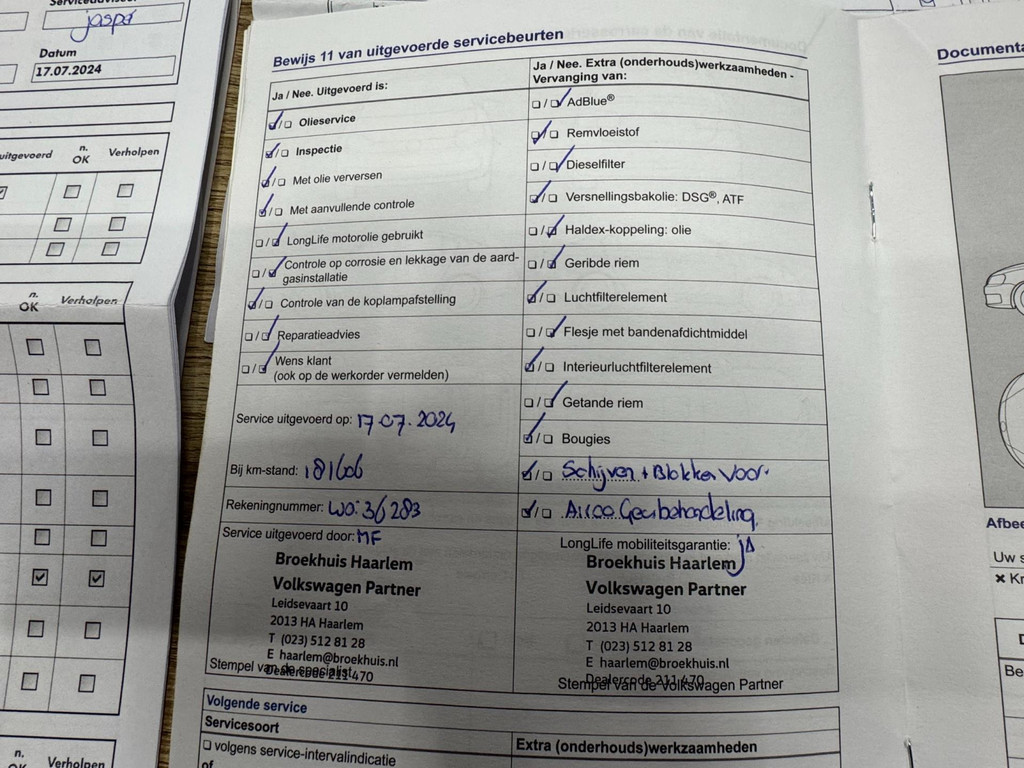 jaspar
Datum
17.07.2024
uitgevoerd n. OK Verholpen
n. OK Verholpen
n. Verholpen
Bewijs 11 van uitgevoerde servicebeurten
Ja / Nee. Uitgevoerd is:
Olieservice
Inspectie
Met olie verversen
Met aanvullende controle
LongLife motorolie gebruikt
Controle op corrosie en lekkage van de aard-
gasinstallatie
Controle van de koplampafstelling
Reparatieadvies
Wens klant
(ook op de werkorder vermelden)
Service uitgevoerd op: 17.07.2024
Bij km-stand: 181606
Rekeningnummer: WO: 36283
Service uitgevoerd door: MF
Broekhuis Haarlem
Volkswagen Partner
Leidsevaart 10
2013 HA Haarlem
T (023) 512 81 28
E haarlem@broekhuis.nl
Dealercode 211 470
Stempel van de specialist
Ja / Nee. Extra (onderhouds)werkzaamheden -
Vervanging van:
AdBlue®
Remvloeistof
Dieselfilter
Versnellingsbakolie: DSG®, ATF
Haldex-koppeling: olie
Geribde riem
Luchtfilterelement
Flesje met bandenafdichtmiddel
Interieurluchtfilterelement
Getande riem
Bougies
Schijven + Blokken Voor.
Airco Geurbehandeling
LongLife mobiliteitsgarantie: ja
Broekhuis Haarlem
Volkswagen Partner
Leidsevaart 10
2013 HA Haarlem
T (023) 512 81 28
E haarlem@broekhuis.nl
Dealercode 211 470
Stempel van de Volkswagen Partner
Volgende service
Servicesoort
volgens service-intervalindicatie
of
Extra (onderhouds)werkzaamheden
Uw